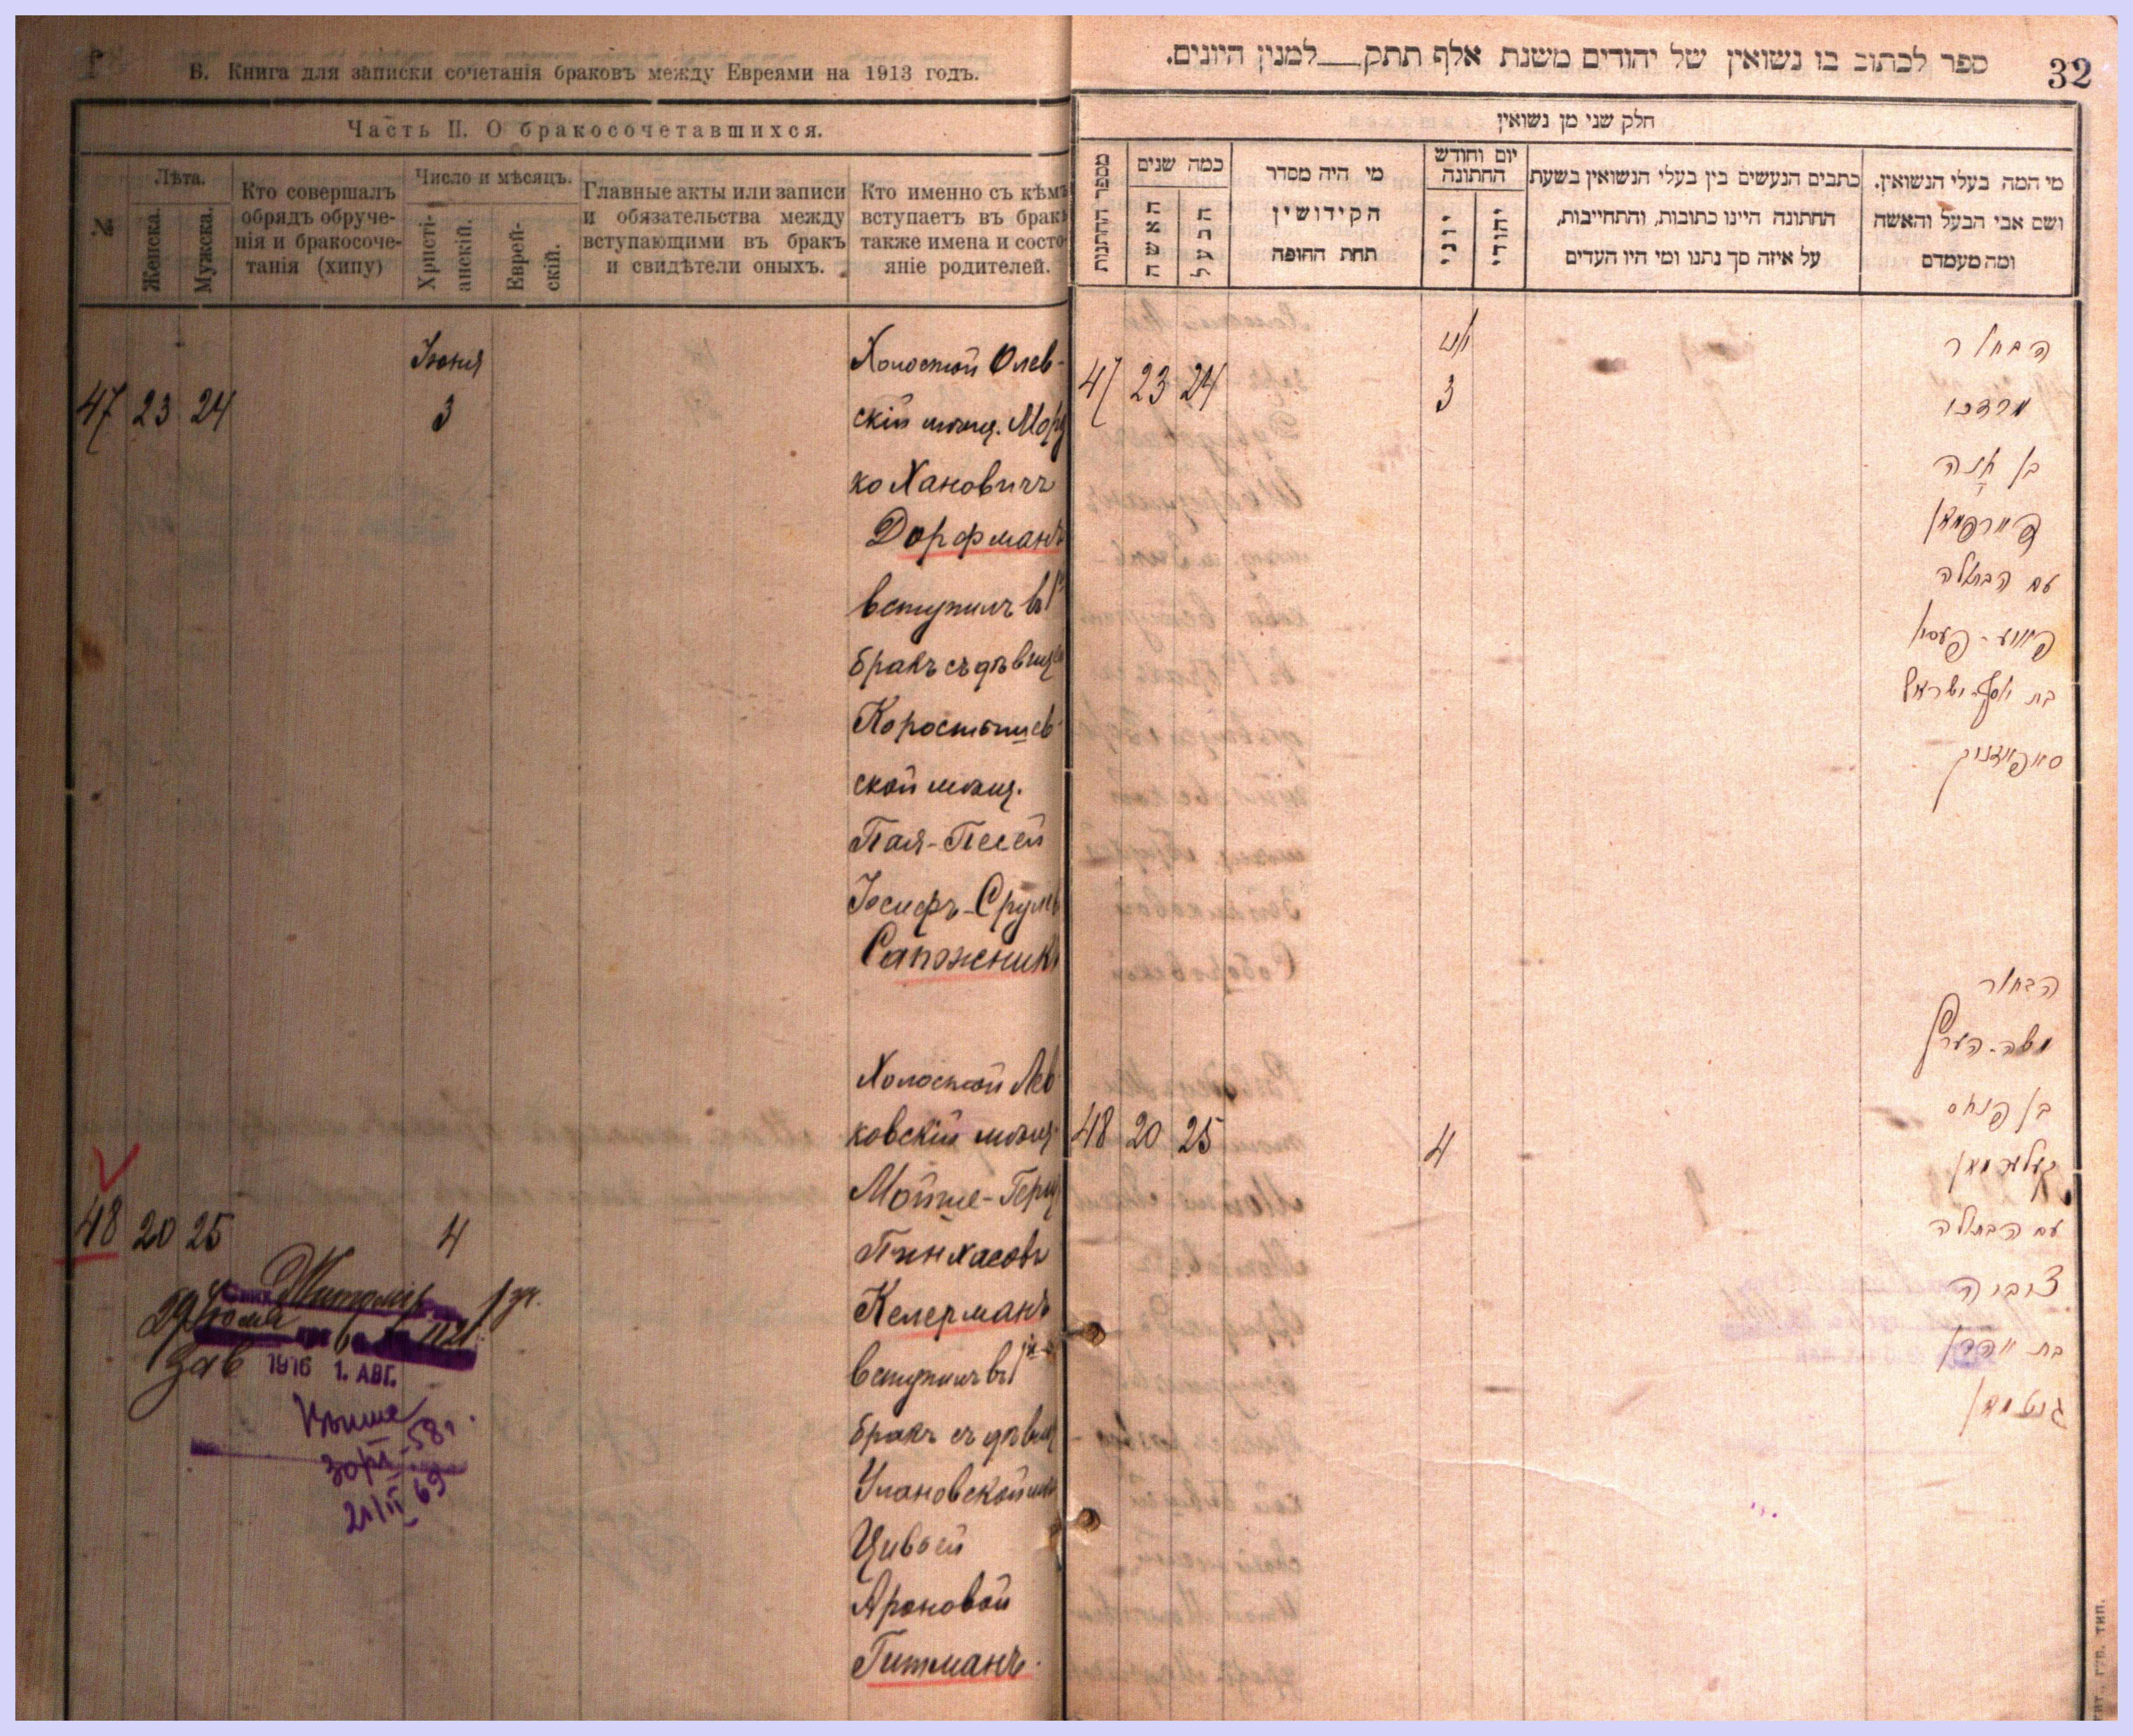 В. Книга для записки сочетанія браковъ между Евреями на 1913 годъ.
Часть II. О бракосочетавшихся.
№
Лѣта.
Женска.
Мужска.
Кто совершалъ
обрядъ обруче-
нія и бракосоче-
танія (хипу)
Число и мѣсяцъ.
Христі-
анскій.
Еврей-
скій.
Главные акты или записи
и обязательства между
вступающими въ бракъ
и свидѣтели оныхъ.
Кто именно съ кѣмъ
вступаетъ въ бракъ
также имена и состо-
яніе родителей.
Іюня
47 23 24 3
Холостой Олев-
скій мѣщ.Морд
ко Хановичъ
Дорфманъ
вступилъ въ 1й
бракъ съ дѣвицей
Коростышев-
ской мѣщ.
Пая-Песей
Іосифъ-Срулев
Сапожникъ
48 20 25 4
Холостой Лев-
ковскій мѣщ.
Мойше-Герш
Пинхасовъ
Келерманъ
вступилъ въ 1й
бракъ съ дѣвиц
Улановской мѣщ
Цивьей
Ароновой
Гитманъ.
1916 1. АВГ.
32
ספר לכתוב בו נשואין של יהודים משנת אלף תתק__למנין היונים.
חלק שני מן נשואין
מספר החתנות
כמה שנים
האשה
הבעל
מי היה מסדר
הקידושין
תחת החופה
יום וחודש
החתונה
יוני
יהודי
כתבים הנעשים בין בעלי הנשואין בשעת
החתונה היינו כתובות, והתחייבות,
על איזה סך נתנו ומי היו העדים
מי המה בעלי הנשואין.
ושם אבי הבעל והאשה
ומה מעמדם
47 23 24 3
הבחור
מרדכו
בן חנה
דיורפמאן
עם הבתולה
פייע-פעסא
בת יוסף-ישראל
סאפאזניק
48 20 25 4
הבחור
משה-הערש
בן פנחס
קעלערמאן
עם הבתולה
צוביה
בת אהרן
גוטמאן